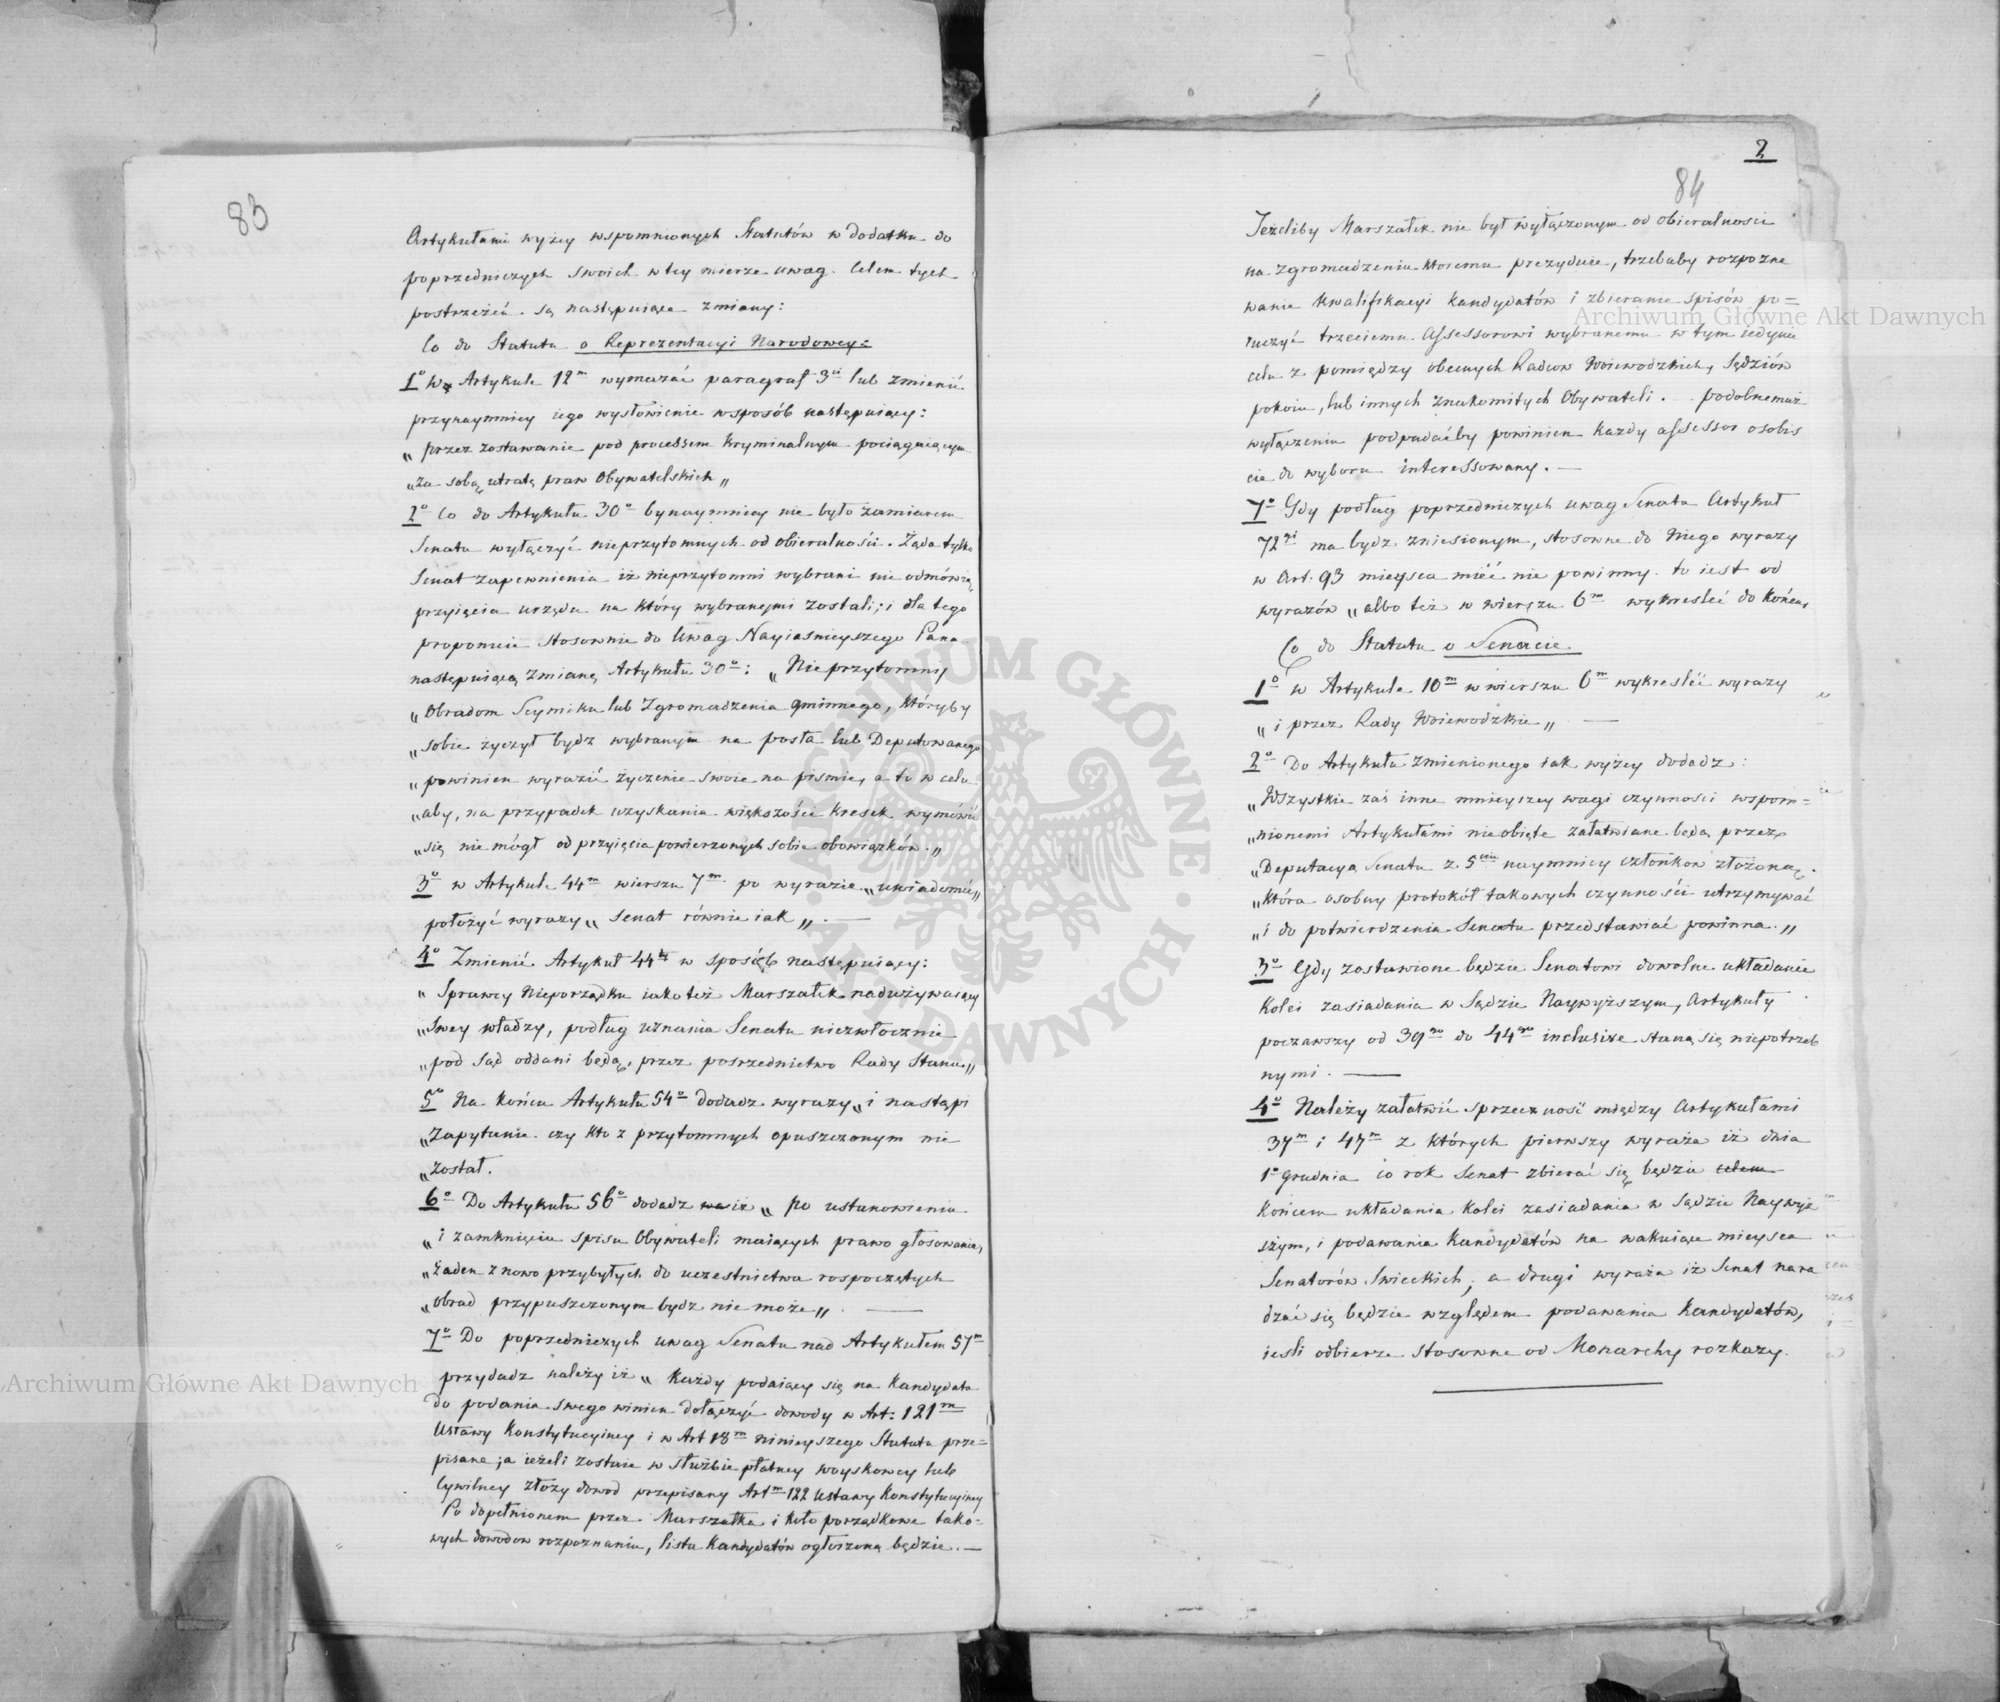 83
Artykułami wyżey wspomnionych Statutów w dodatku do
poprzedniczych swoich w tey mierze uwag. Celem tych
postrzeżeń są następuiące zmiany:
Co do Statutu o Reprezentacyi Narodowey:
1° w Artykule 12m wymazać paragraf 3ci lub zmienić
przynaymniey iego wysłowienie w sposób następuiący:
„przez zostawanie pod processem kryminalnym pociągaiącym
„za sobą utratę praw Obywatelskich„
2° Co do Artykułu 30° bynaymniey nie było zamiarem
Senatu wyłączyć nieprzytomnych od obieralności. Żąda tylko
Senat zapewnienia iż nieprzytomni wybrani nie odmówią
przyięcia urzędu na który wybranymi zostali; i dla tego
proponuie stosownie do Uwag Nayiaśnieyszego Pana
następuiącą zmianę Artykułu 30°: „Nieprzytomny
„Obradom Seymiku lub Zgromadzenia gminnego, któryby
„sobie życzył bydz wybranym na posła lub Deputowanego
„powinien wyrazić życzenie swoie na piśmie, a to w celu
„aby, na przypadek uzyskania większości kresek wymówić
„się nie mógł od przyięcia powierzonych sobie obowiązków.„
3° w Artykule 44m wierszu 7m po wyrazie „uwiadomić„
położyć wyrazy „Senat równie iak„. —
4° Zmienić Artykuł 44ty w sposób następuiący:
„Sprawcy Nieporządku iako też Marszałek nadużywaiący
„swey władzy, podług uznania Senatu niezwłocznie
„pod sąd oddani będą, przez pośrednictwo Rady Stanu„
5° Na końcu Artykułu 54° dodadz wyrazy „i nastąpi
„Zapytanie czy kto z przytomnych opuszczonym nie
„został.
6° Do Artykułu 56° dodadz iż „po ustanowieniu
„i zamknięciu spisu Obywateli maiących prawo głosowania,
„żaden z nowo przybyłych do uczestnictwa rospoczętych
„obrad przypuszczonym bydz nie może„. —
7° Do poprzedniczych uwag Senatu nad Artykułem 57m
przydadz należy iż „Każdy podaiący się na Kandydata
do podania swego winien dołączyć dowody w Art: 121m
Ustawy Konstytucyiney i w Art 18m ninieyszego Statutu prze=
pisane; a ieżeli zostaie w służbie płatney woyskowey lub
Cywilney złoży dowod przepisany Artm 122 Ustawy Konstytucyiney
Po dopełnionem przez Marszałka i koło porządkowe tako=
wych dowodow rozpoznaniu, lista Kandydatów ogłoszoną będzie. —
2
84
Jeżeliby Marszałek nie był wyłączonym od obieralności
na zgromadzeniu któremu prezyduie, trzebaby rozpozna
wanie kwalifikacyi kandydatów i zbieranie spisów po=
ruczyć trzeciemu Assessorowi wybranemu w tym iedynie
celu z pomiędzy obecnych Radców Woiewodzkich, Sędziów
pokoiu, lub innych znakomitych Obywateli. — podobnemuż
wyłączeniu podpadaćby powinien każdy assessor osobiś
cie do wyboru interessowany. —
7° Gdy podług poprzedniczych uwag Senatu Artykuł
72gi ma bydz zniesionym, stosowne do Niego wyrazy
w Art. 93 mieysca mieć nie powinny to iest od
wyrazów „albo też w wierszu 6m wykreślić do końca,
Co do Statutu o Senacie
1° w Artykule 10m w wierszu 6m wykreślić wyrazy
„i przez Rady Woiewodzkie„ —
2° Do Artykułu zmienionego iak wyżey dodadz:
„Wszystkie zaś inne mnieyszey wagi czynności wspom=
„nionemi Artykułami nieobięte załatwiane będą przez
„Deputacyą Senatu z 5ciu naymniey członkow złożoną,
„która osobny protokół takowych czynności utrzymywać
„i do potwierdzenia Senatu przedstawiać powinna.„
3° Gdy zostawione będzie Senatowi dowolne układanie
Kolei zasiadania w Sądzie Naywyższym, Artykuły
począwszy od 39go do 44go inclusive staną się niepotrzeb
nymi. —
4° Należy załatwić sprzeczność między Artykułami
37m i 47m z których pierwszy wyraża iż dnia
1° Grudnia co rok Senat zbierać się będzie celem
końcem układania Kolei zasiadania w Sądzie Naywyż
szym, i podawania Kandydatów na wakuiące mieysca
Senatorów Swieckich; a drugi wyraża iż Senat nara
dzać się będzie względem podawania Kandydatów,
iesli odbierze stosowne od Monarchy rozkazy.
Archiwum Główne Akt Dawnych
Archiwum Główne Akt Dawnych
ARCHIWUM GŁÓWNE · AKT DAWNYCH ·